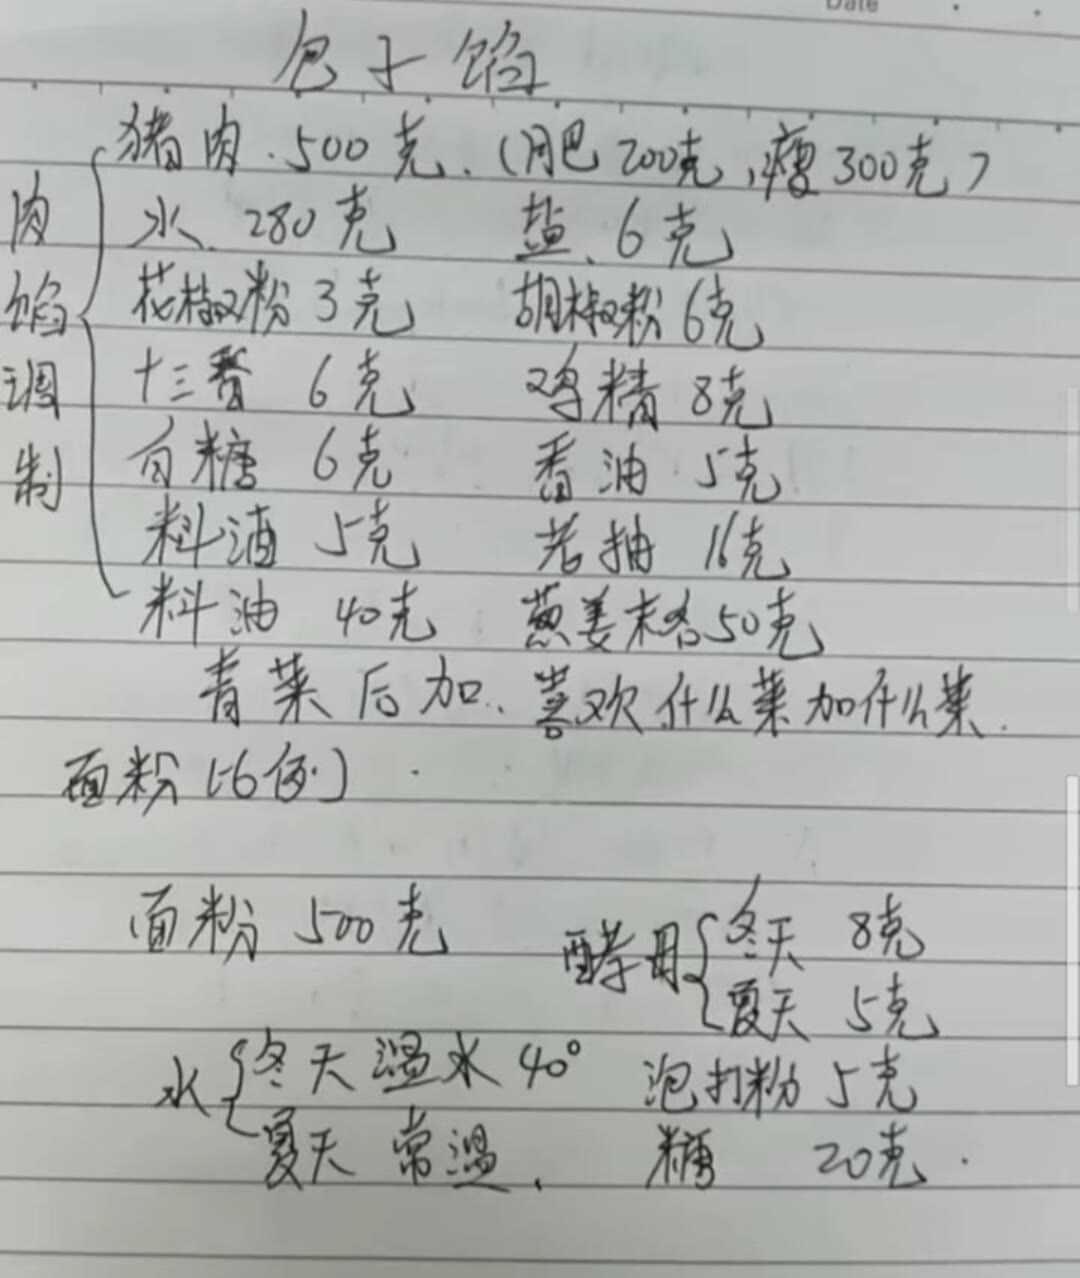 Date
包子馅
猪肉.500克.(肥200克,瘦300克)
水.280克 盐.6克
花椒粉3克 胡椒粉6克
十三香 6克 鸡精 8克
白糖 6克 香油 5克
料酒 5克 老抽 16克
料油 40克 葱姜末各50克
肉馅调制
青菜后加.喜欢什么菜加什么菜.
面粉
面粉 500克 酵母 冬天 8克
夏天 5克
水 冬天温水40° 泡打粉5克
夏天 常温. 糖 20克.